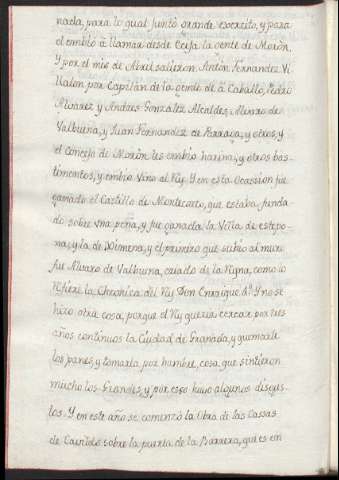 nada, para lo qual juntó grande exercito, y para
el embió á llamar desde Ecija la gente de Morón,
Y por el mes de Abril salieron, Antón Fernandez Vi
llalon por Capitán de la gente de á Caballo, Pedro
Alvarez y Andres Gonzalez Alcaldes, Alvaro de
Valbuena, y Juan Fernandez de Barraça, y otros, y
el Concejo de Morón les embio harina, y otros bas-
timentos, y embio vino al Rey Y en esta Ocassion fue
ganado el Castillo de Montecorto, que estaba funda-
do sobre vna peña, y fue ganada la Villa de estepo-
na, y la de Ximena, y el primero que subió al muro
fue Alvaro de Valbuena, criado de la Reyna, como lo
refiere la Chronica del Rey Don Enrrique 4º. Y no se
hizo otra cosa, porque el Rey queria cercar por tres
años continuos la Ciudad de Granada, y quemarle
los panes, y tomarla por hambre, cosa que sintieron
mucho los Grandes, y por esso huvo algunos disgus-
tos. Y en este año se comenzó la Obra de las Cassas
de Cavildo sobre la puerta de la Barrera, que es en